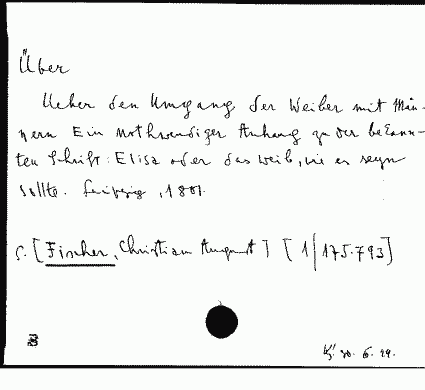 Über
Ueber den Umgang der Weiber mit Män-
nern Ein nothwendiger Anhang zu der bekann-
ten Schrift: Elisa oder das Weib, wie es seyn
sollte. Leipzig, 1801.
s. [Fischer, Christian August] [1|175.793]
B
30. 6. 29.